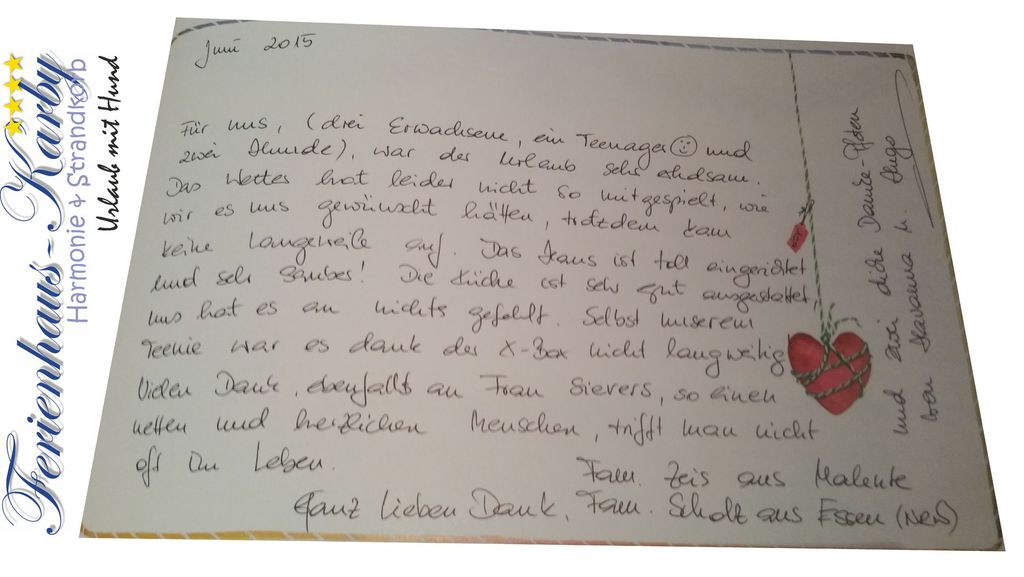 Ferienhaus-Karby
Harmonie & Strandkorb
Urlaub mit Hund
Juni 2015
Für uns, (drei Erwachsene, ein Teenager und
zwei Hunde), war der Urlaub sehr erholsam.
Das Wetter hat leider nicht so mitgespielt, wie
wir es uns gewünscht hätten, trotzdem kam
keine Langeweile auf. Das Haus ist toll eingerichtet
und sehr sauber! Die Küche ist sehr gut ausgestattet,
uns hat es an nichts gefehlt. Selbst unserem
Teenie war es dank der X-Box nicht langweilig
Vielen Dank, ebenfalls an Frau Sievers, so einen
netten und herzlichen Menschen, trifft man nicht
oft im Leben.
Fam. Zeis aus Malente
Ganz lieben Dank, Fam. Scholz aus Essen (NRW)
und zwei dicke Danke-Pfoten
von Havanna u. Hugo